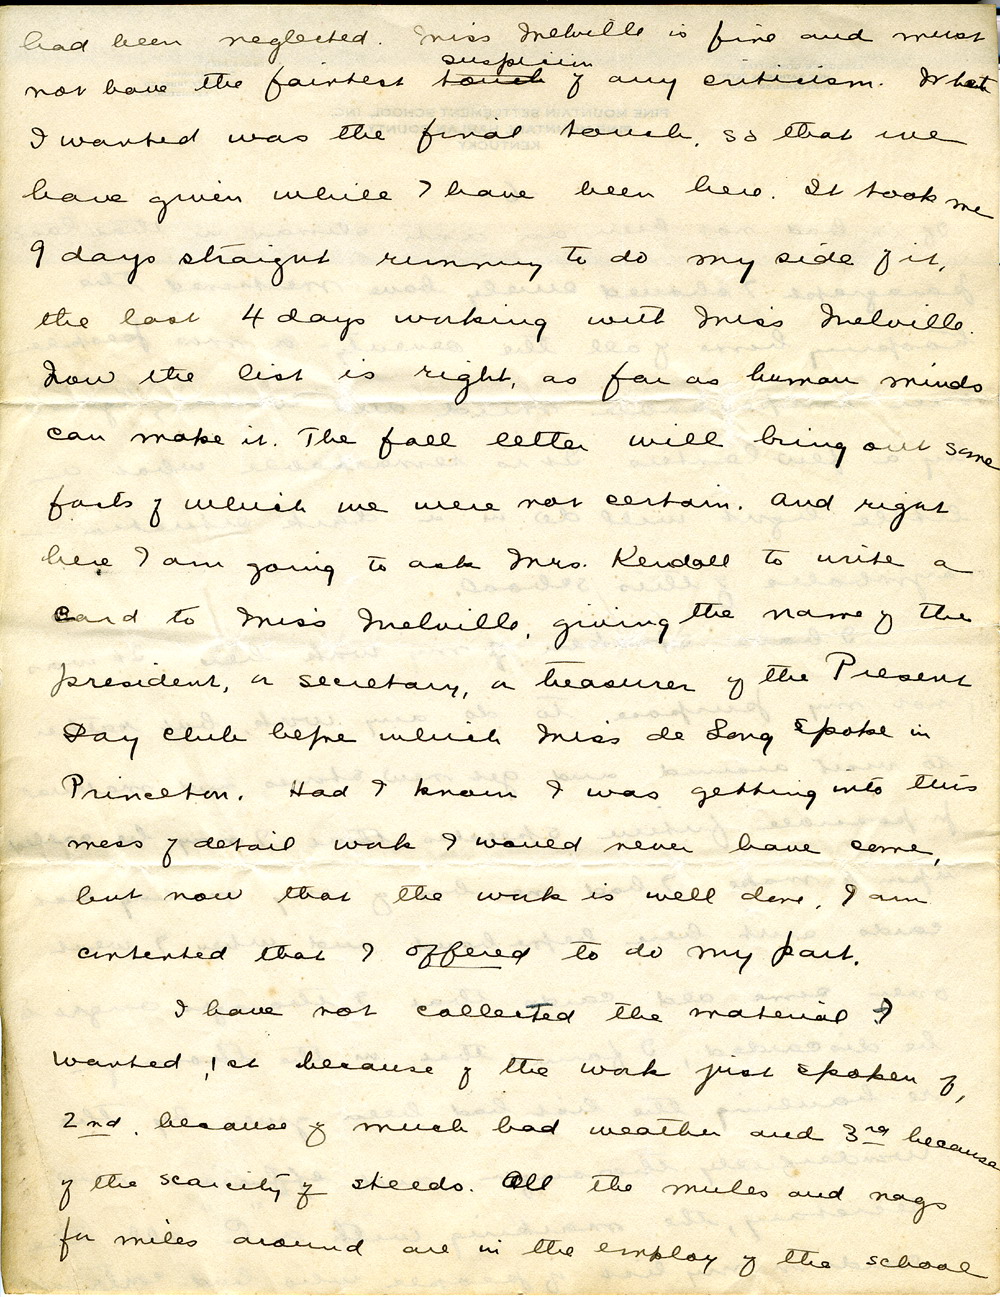 had been neglected. Miss Melville is fine and must
suspicion
not have the faintest touch of any criticism. What
I wanted was the final touch, so that we
have given while I have been here. It took me
9 days straight running to do my side of it,
the last 4 days working with Miss Melville.
Now the list is right, as far as human minds
can make it. The fall letter will bring out some
facts of which we were not certain. And right
here I am going to ask Mrs. Kendall to write a
card to Miss Melville, giving the name of the
president, or secretary, or treasurer of the Present
Day Club before which Miss de Long spoke in
Princeton. Had I known I was getting into this
mess of detail work I would never have come,
but now that the work is well done, I am
contented that I offered to do my part.
I have not collected the material I
wanted, 1st because of the work just spoken of,
2nd, because of much bad weather and 3rd because
of the scarcity of steeds. All the mules and nags
for miles around are in the employ of the school